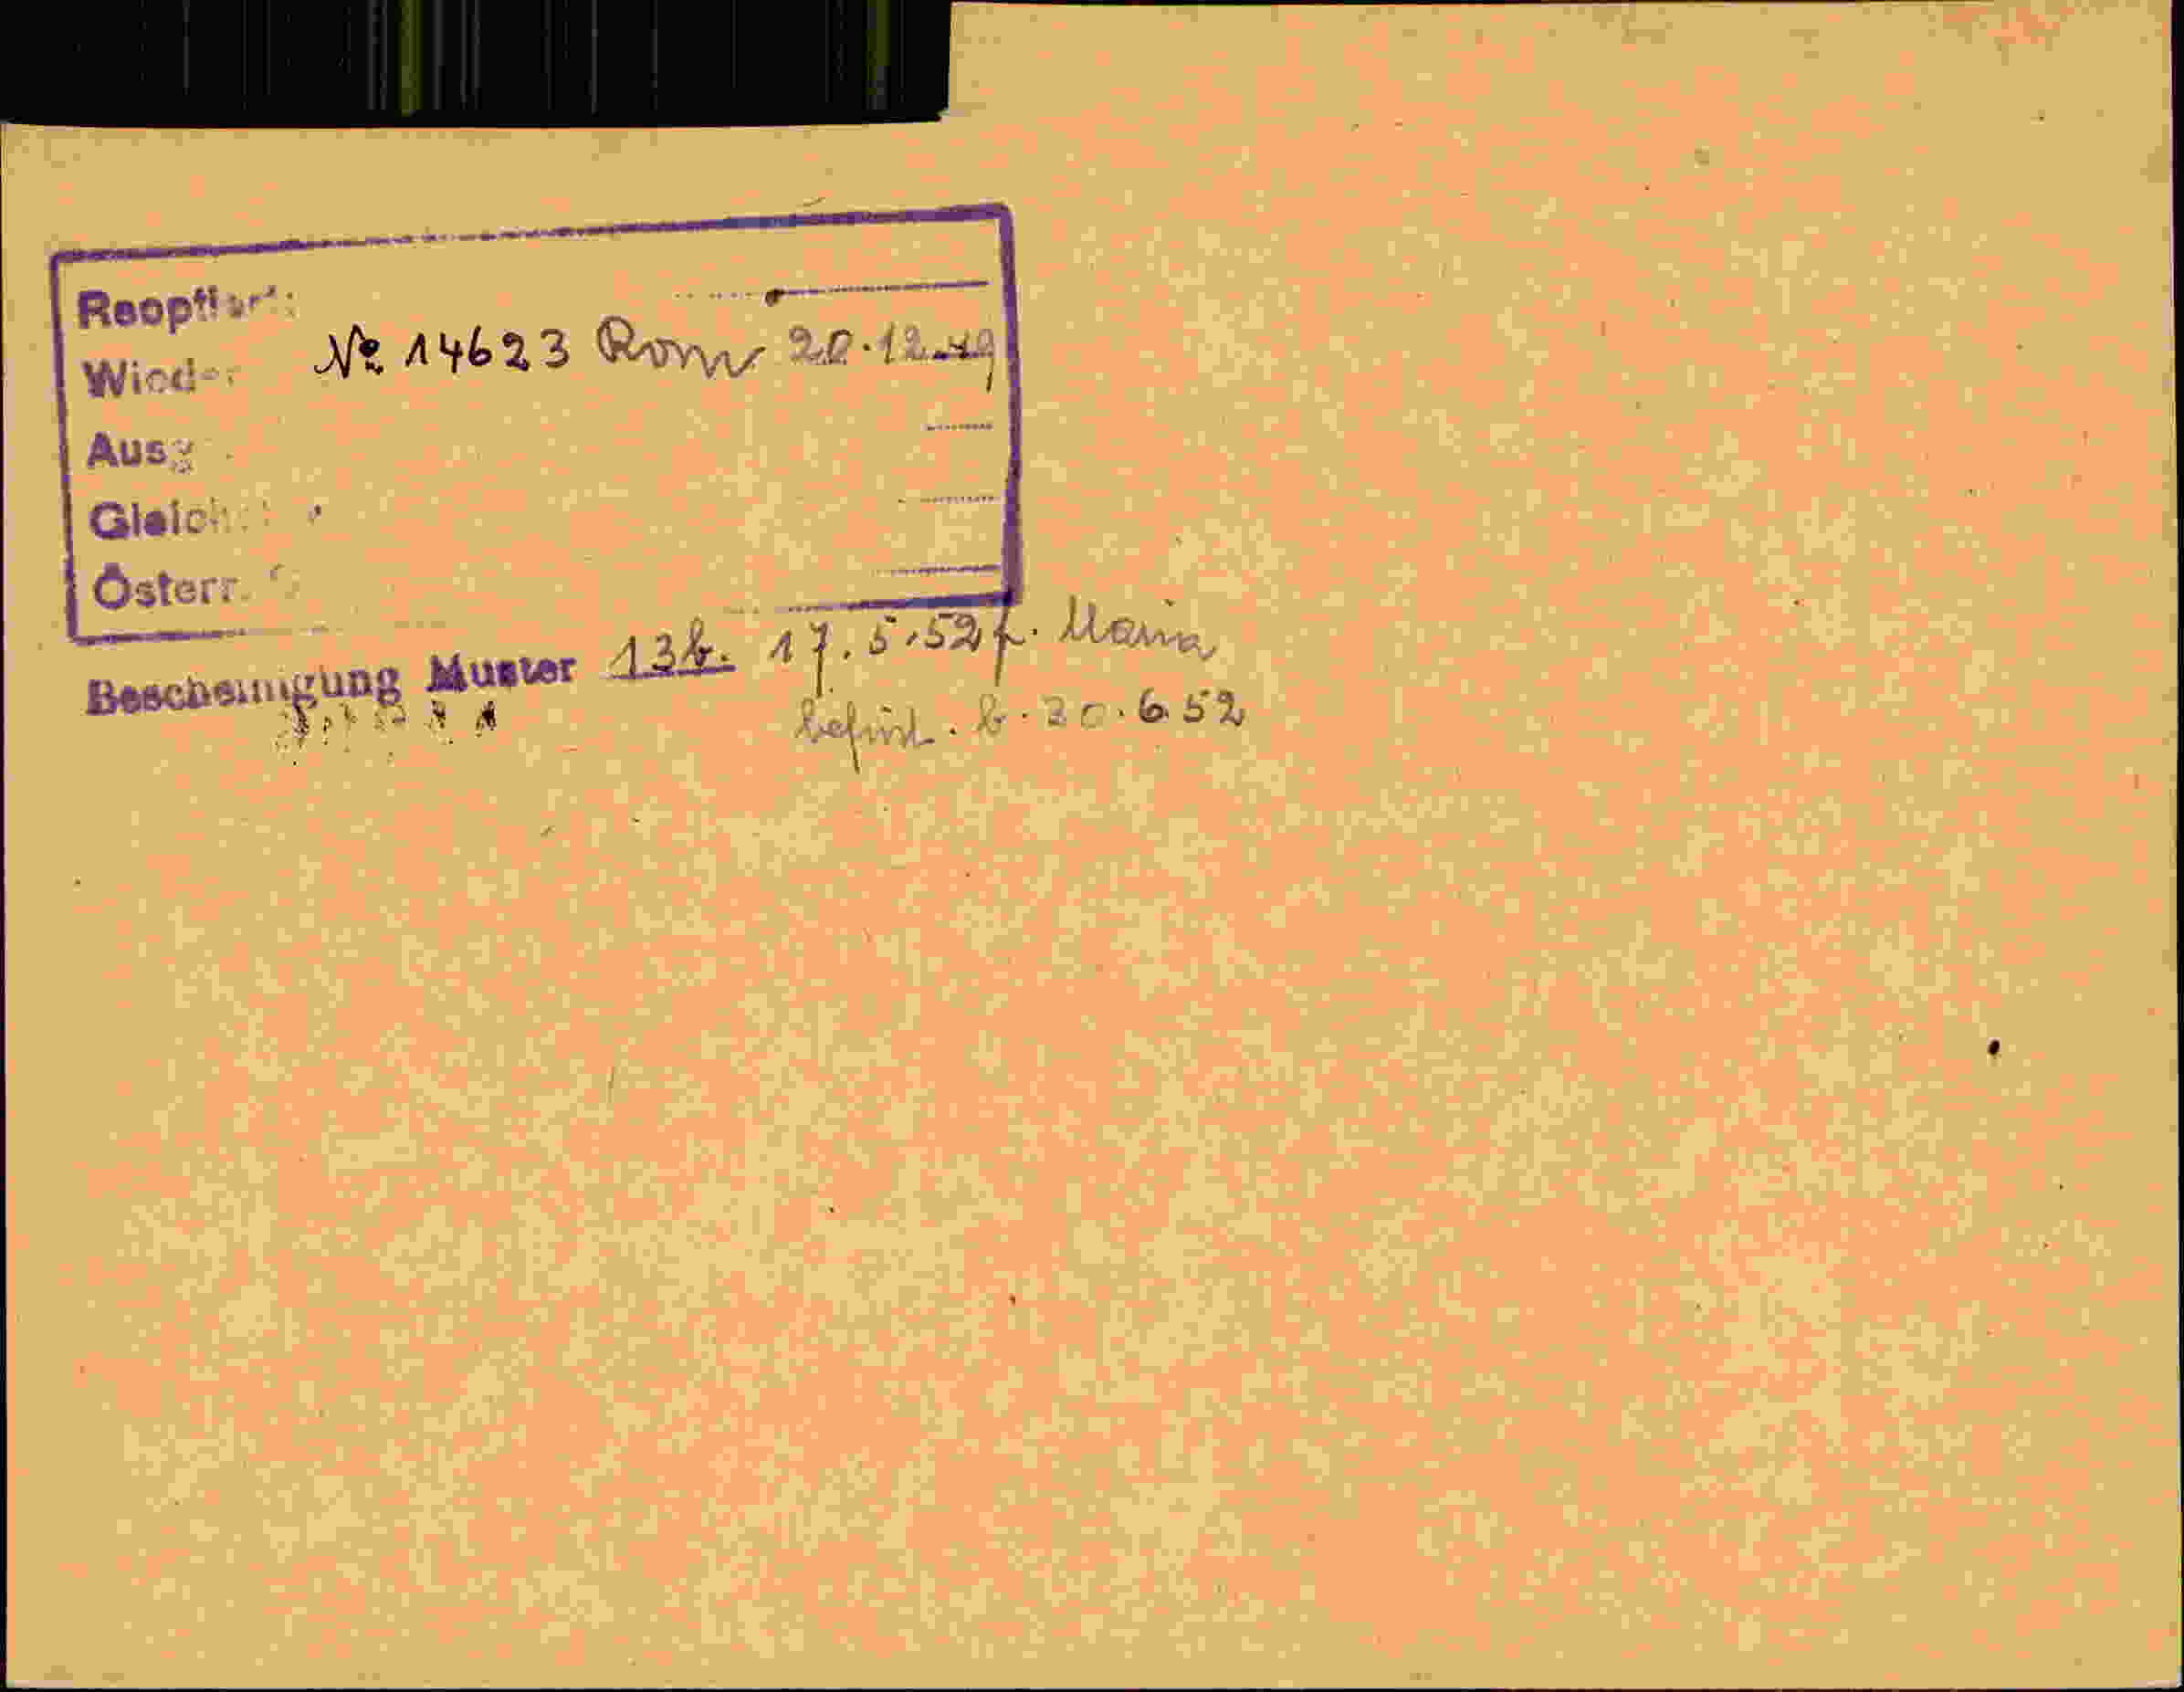 Reoptiert:
Wieder № 14623 Rom 20.12.49
Ausg
Gleich
Österr.
Bescheinigung Muster 13b. 17.5.52 f. Maria
befrist. b. 30.6.52